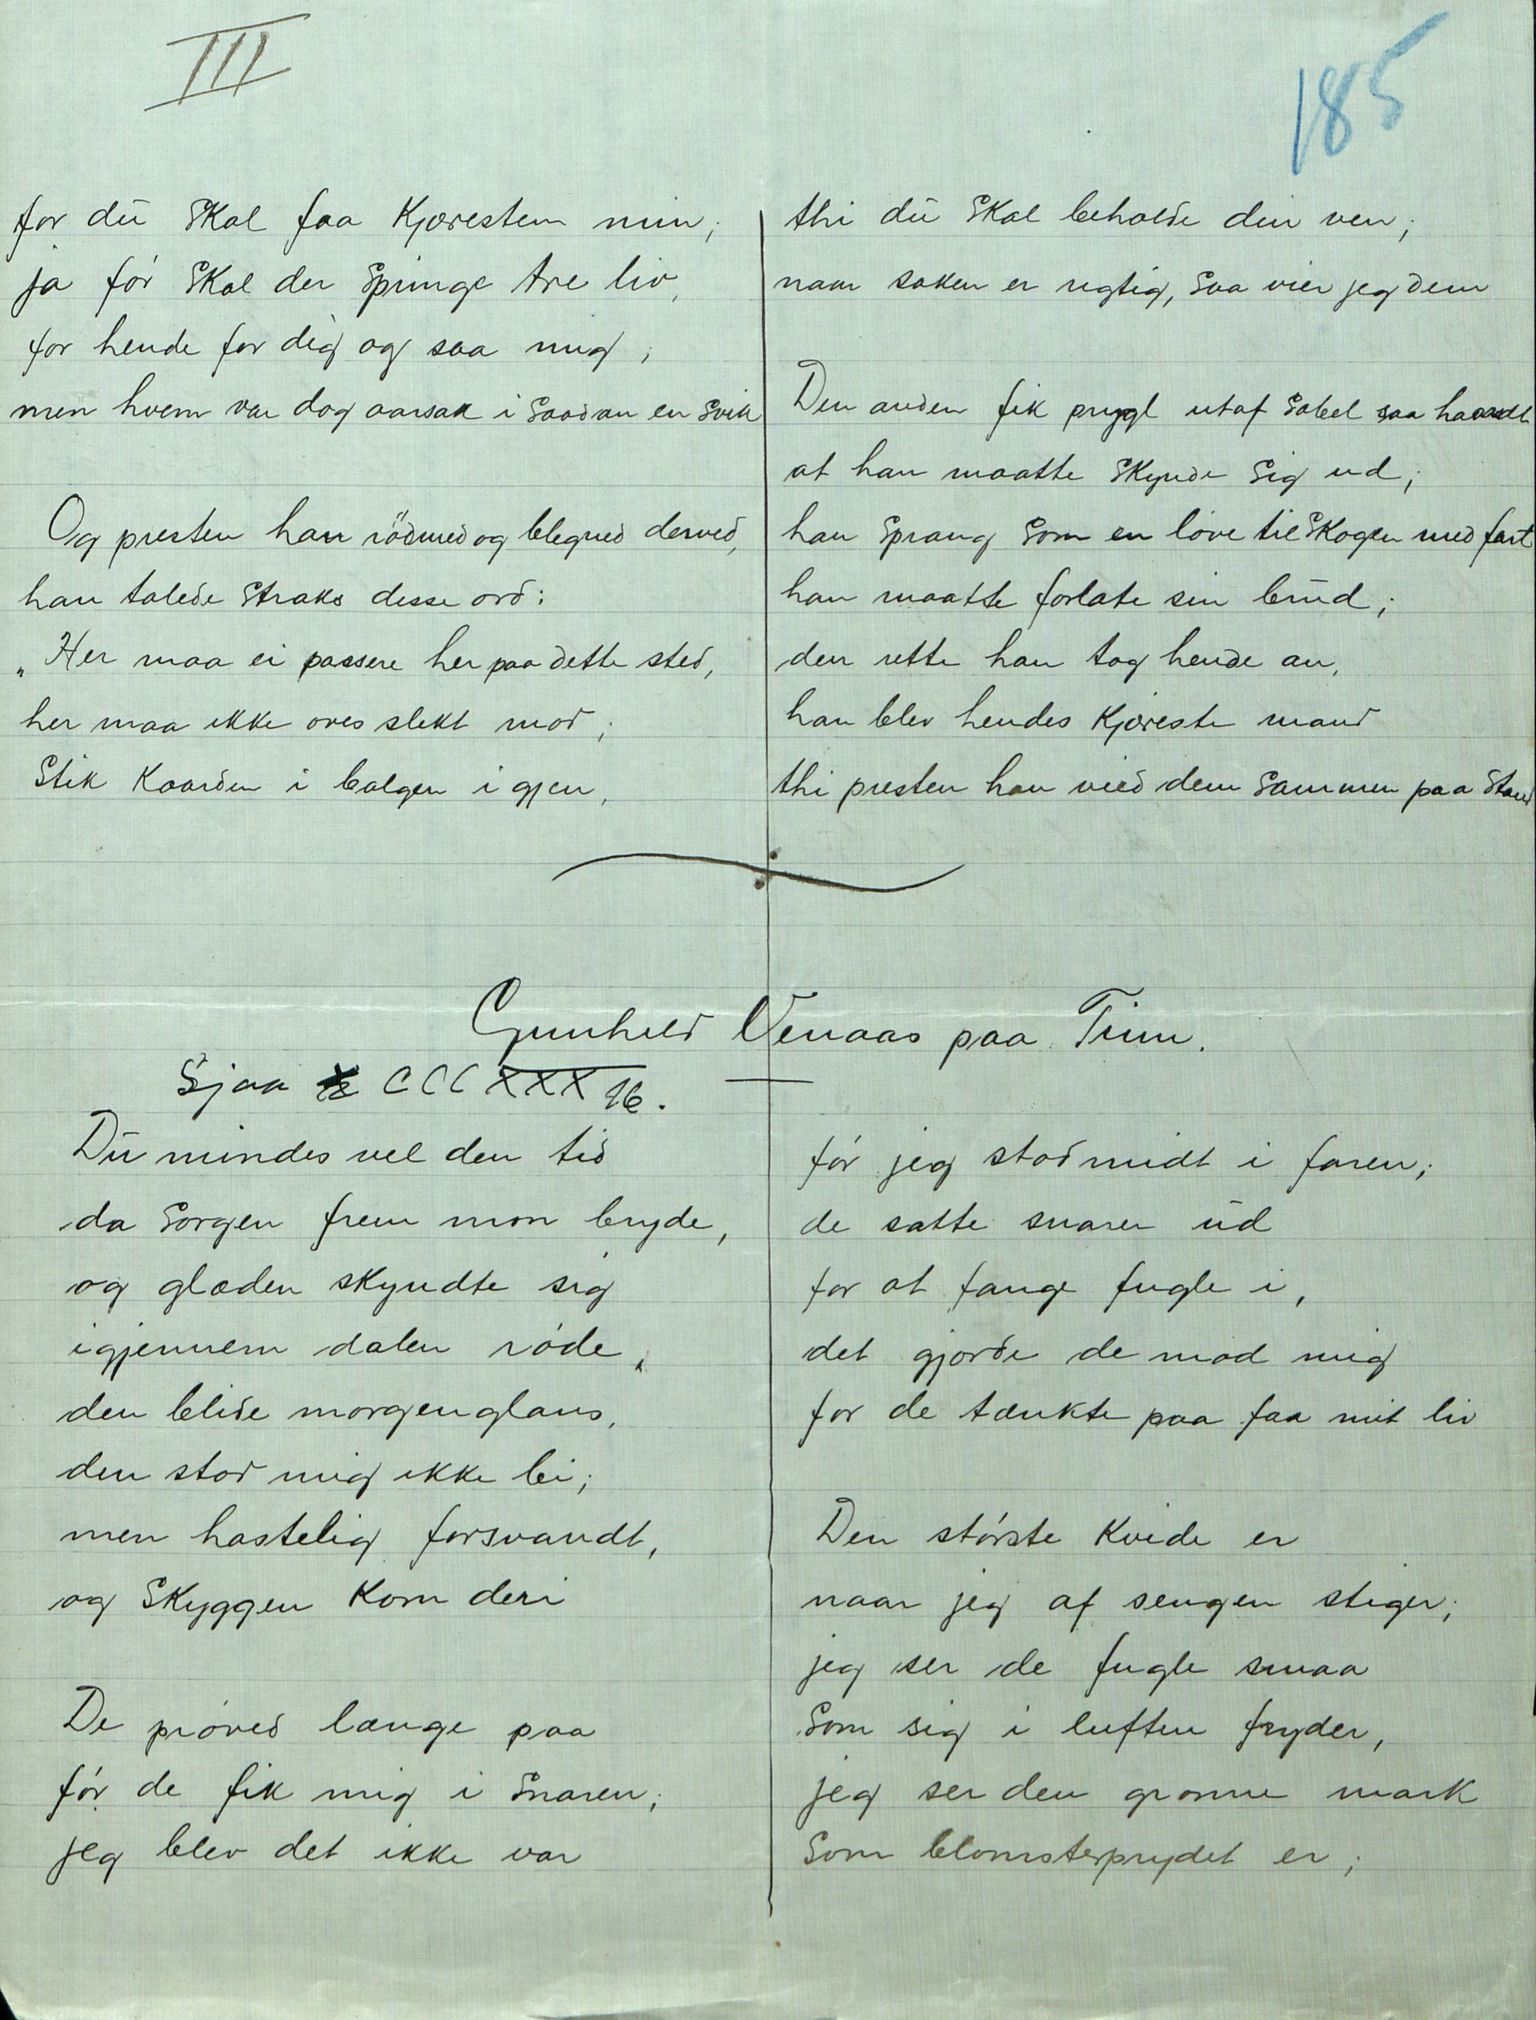 III
185
for du skal faa kjæresten min;
ja før skal der springe tre liv,
for hende for dig og saa mig;
men hvem var dog aarsak i saadan en svik
Og presten han rödmed og blegned derved,
han talede straks disse ord:
„Her maa ei passere her paa dette sted,
her maa ikke øves slekt mord;
Stik kaarden i balgen igjen,
thi du skal beholde din ven;
naar saken er rigtig, saa vier jeg dem
Den anden fik prygl utaf sabel saa haardt
at han maatte skynde sig ud;
han sprang som en løve til skogen med fart
han maatte forlate sin brud;
den rette han tog hende an,
han blev hendes kjæreste mand
thi presten han vied dem sammen paa stand
Gunhild Venaas paa Tinn.
Sjaa CCCXXX 16.
Du mindes vel den tid
da sorgen frem mon bryde,
og glæden skyndte sig
igjennem dalen røde,
den blide morgenglans,
den stod mig ikke bi;
men hastelig forsvandt,
og skyggen kom deri
De prøved længe paa
før de fik mig i snaren;
jeg blev det ikke var
før jeg stod midt i faren;
de satte snarer ud
for at fange fugle i,
det gjorde de mod mig
for de tænkte paa faa mit liv
Den største kvide er
naar jeg af sengen stiger;
jeg ser de fugle smaa
som sig i luften fryder,
jeg ser den grønne mark
som blomsterprydet er;